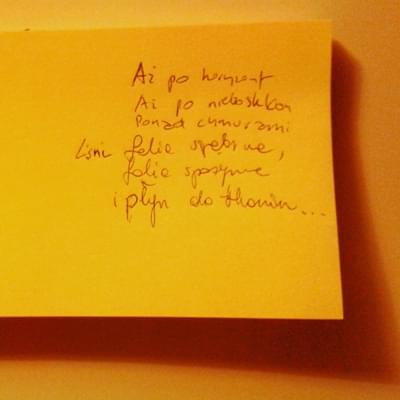 Aż po horyzont
Aż po nieboskłon
Ponad chmurami
Lśni folia srebrna,
folia spożywcza
i płyn do tkanin...